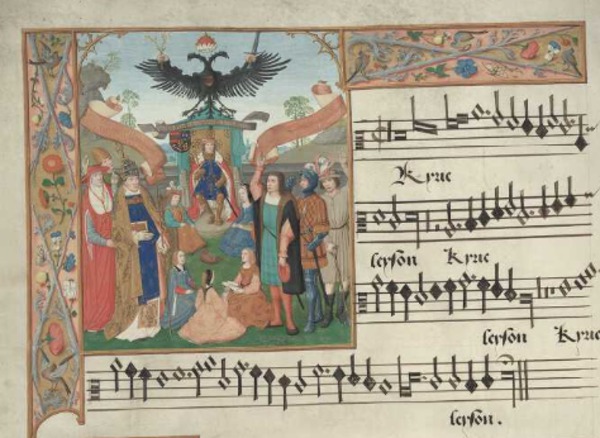 Kyrie
leyson Kyrie
leyson Kyrie
leyson.